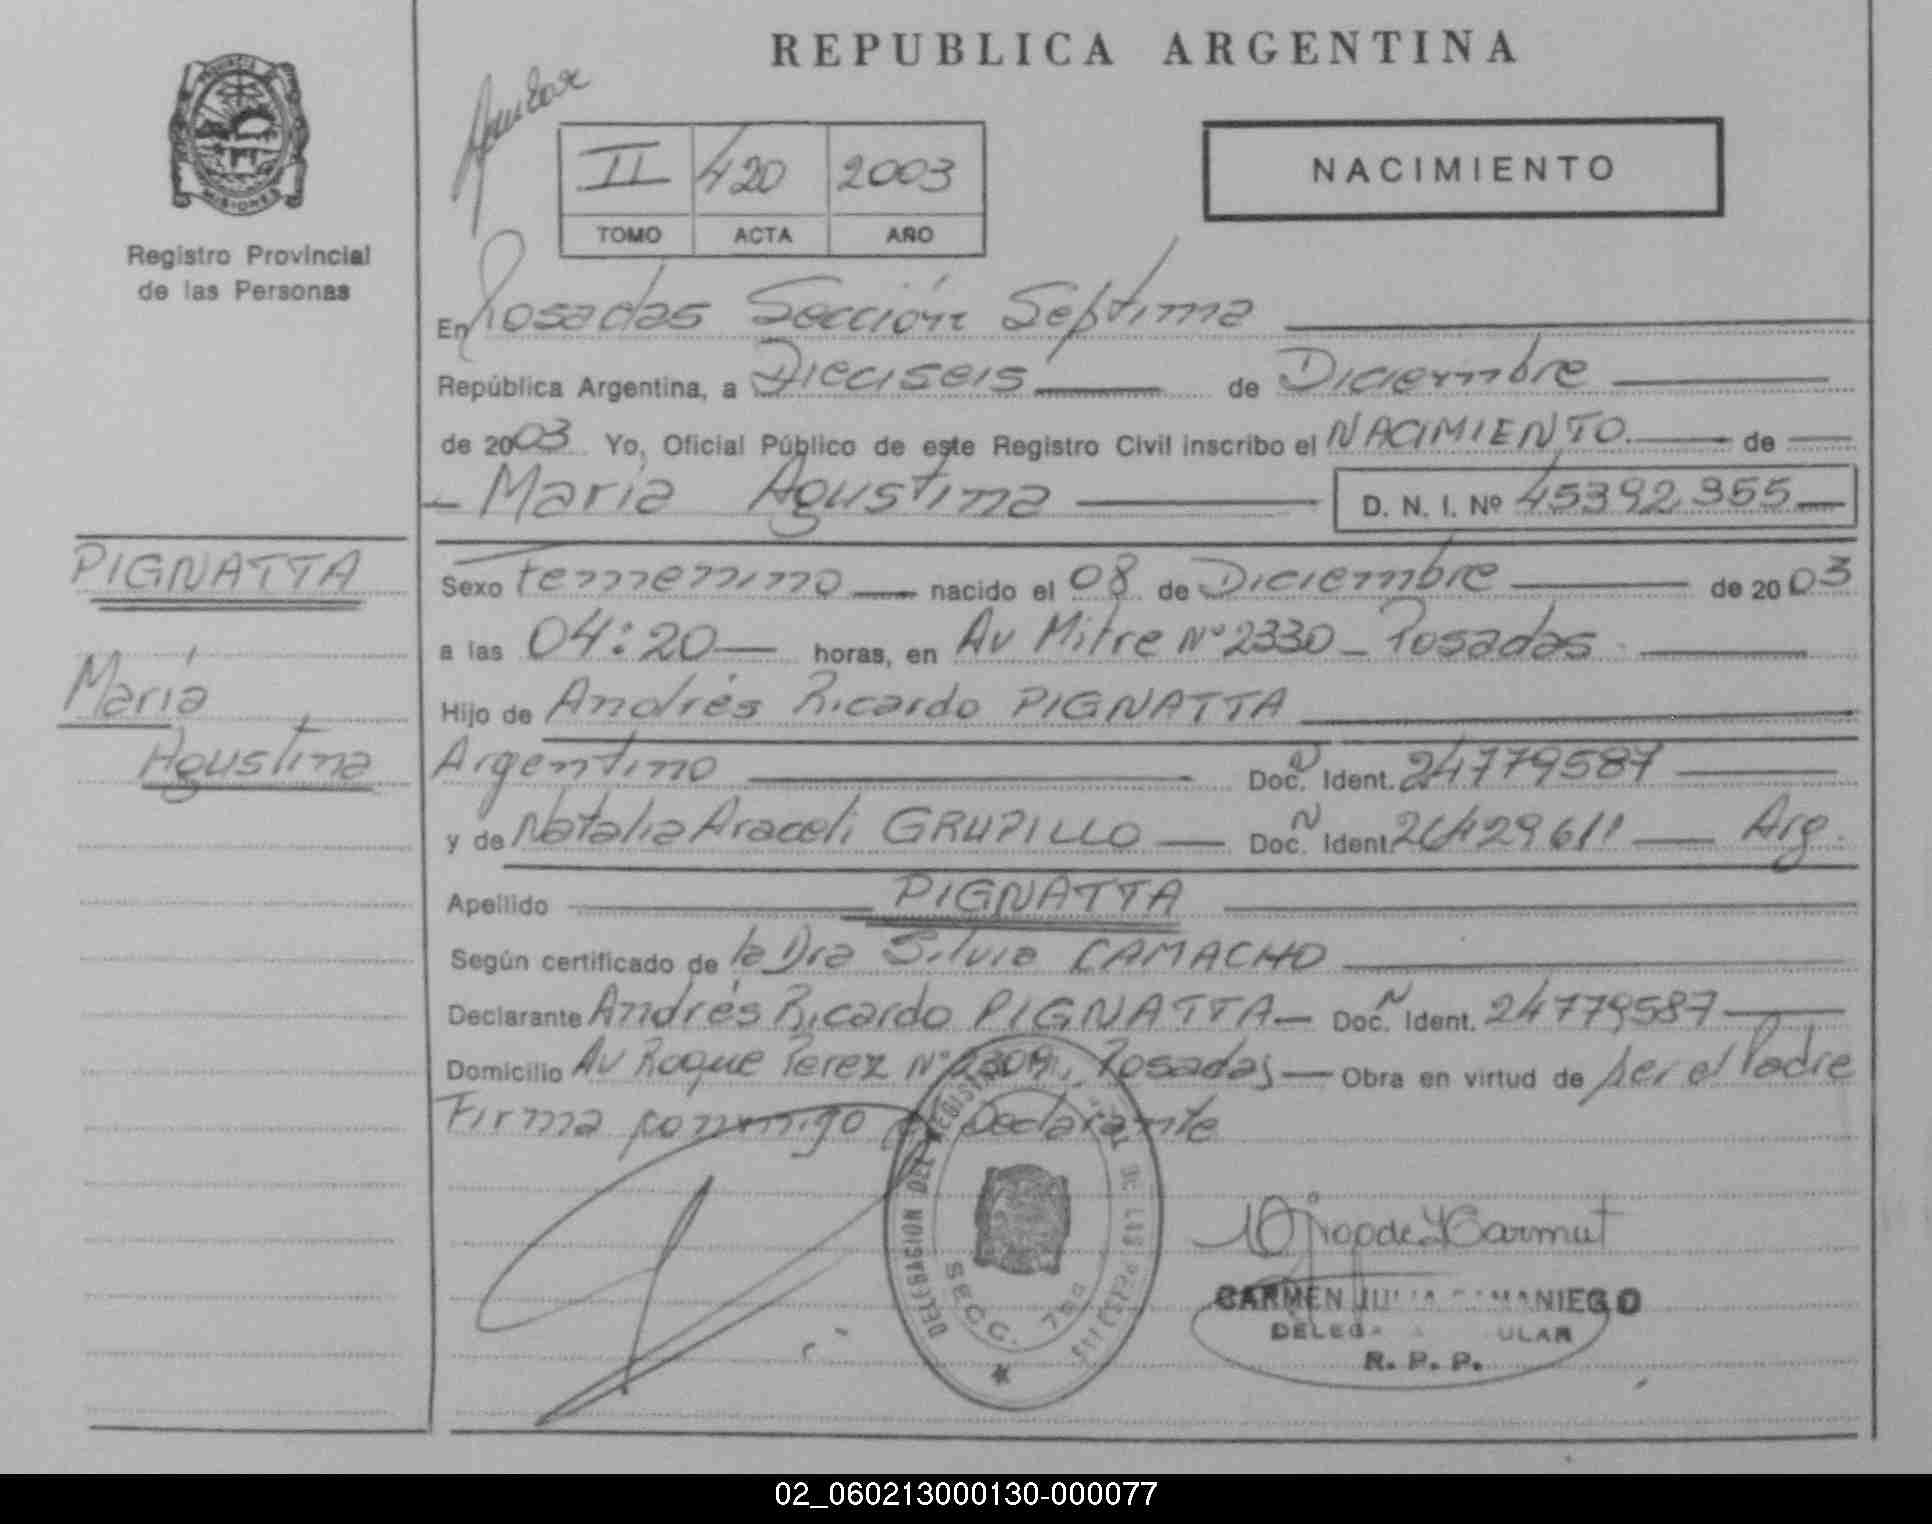 REPUBLICA ARGENTINA
PROVINCIA DE
MISIONES
Registro Provincial
de las Personas
II 420 2003
TOMO ACTA AÑO
NACIMIENTO
En Posadas Sección Septima
República Argentina, a Dieciseis de Diciembre
de 2003 Yo, Oficial Público de este Registro Civil inscribo el NACIMIENTO de
María Agustina D. N. I. Nº 45392955
PIGNATTA
María
Agustina
Sexo Femenino nacido el 08 de Diciembre de 2003
a las 04:20 horas, en Av Mitre Nº 2330 - Posadas
Hijo de Andrés Ricardo PIGNATTA
Argentino Doc. N Ident. 24779587
y de Natalia Araceli GRUPILLO Doc. N Ident. 26429611 Arg.
Apellido PIGNATTA
Según certificado de la Dra Silvia CAMACHO
Declarante Andrés Ricardo PIGNATTA Doc. N Ident. 24779587
Domicilio Av Roque Perez Nº 2309, Posadas Obra en virtud de ser el Padre
Firma conmigo el Declarante
DELEGACION DEL REGISTRO DE LAS PERSONAS
SECC. 7ma
CARMEN JULIA SAMANIEGO
DELEGADA TITULAR
R. P. P.
02_060213000130-000077